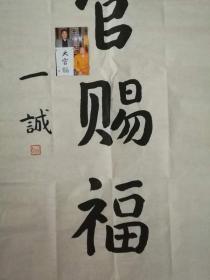 官赐福
一誠
天官賜